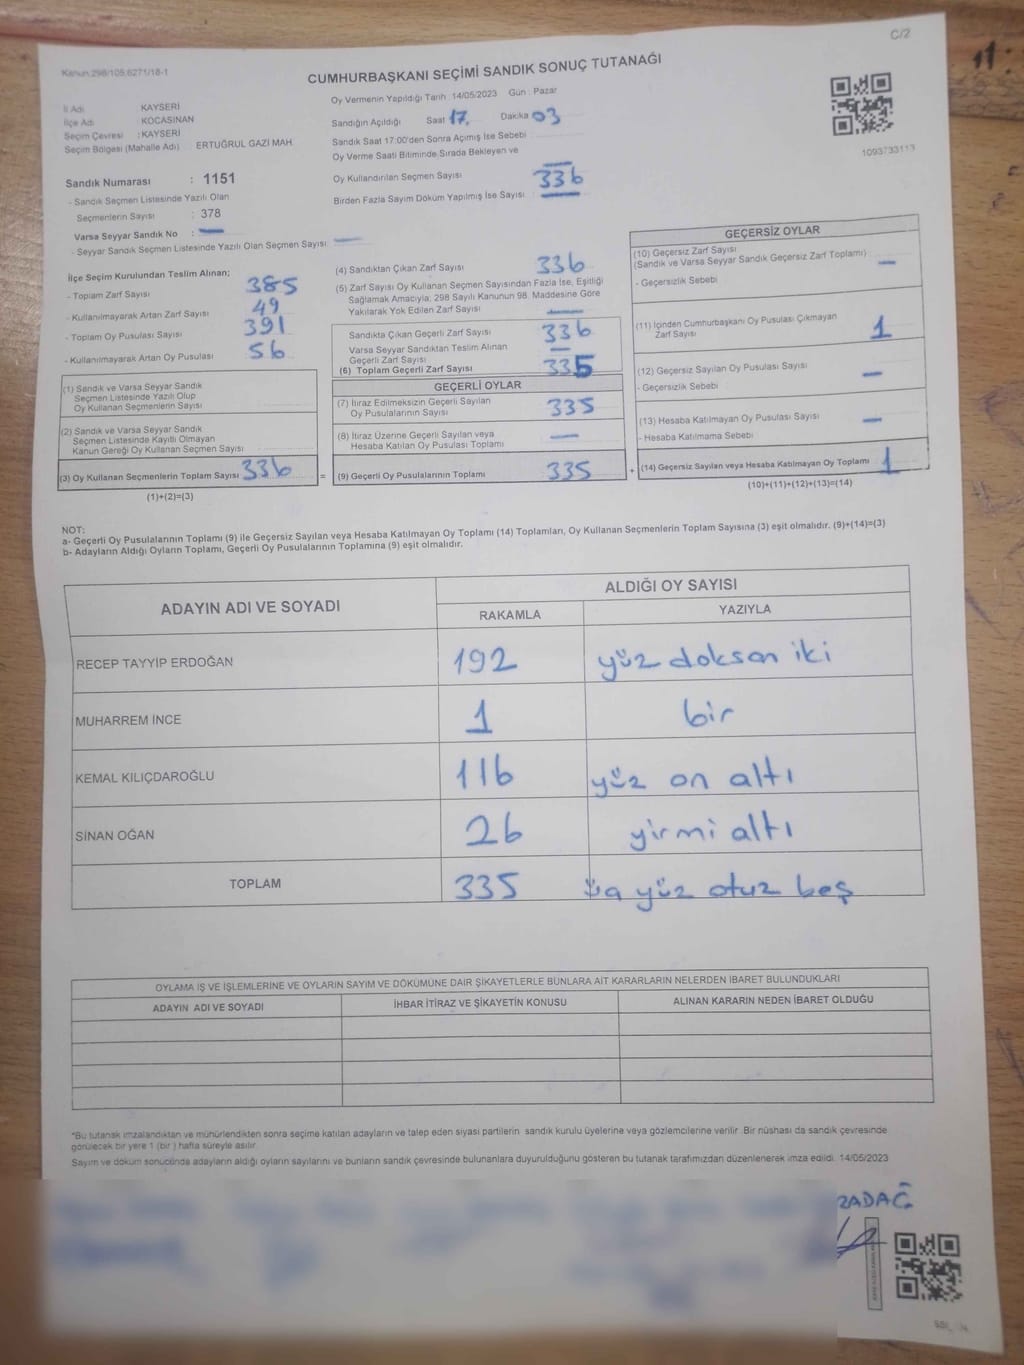 C/2
Kanun:298/105,6271/18-1
CUMHURBAŞKANI SEÇİMİ SANDIK SONUÇ TUTANAĞI
İl Adı KAYSERİ
İlçe Adı KOCASİNAN
Seçim Çevresi : KAYSERİ
Seçim Bölgesi (Mahalle Adı) ERTUĞRUL GAZİ MAH.
Sandık Numarası : 1151
- Sandık Seçmen Listesinde Yazılı Olan
Seçmenlerin Sayısı : 378
Varsa Seyyar Sandık No : —
- Seyyar Sandık Seçmen Listesinde Yazılı Olan Seçmen Sayısı: —
Oy Vermenin Yapıldığı Tarih 14/05/2023 Gün : Pazar
Sandığın Açıldığı Saat 17. Dakika 03
Sandık Saat 17:00'den Sonra Açımış İse Sebebi
Oy Verme Saati Bitiminde Sırada Bekleyen ve
Oy Kullandırılan Seçmen Sayısı —
336
Birden Fazla Sayım Döküm Yapılmış İse Sayısı : —
1093733113
İlçe Seçim Kurulundan Teslim Alınan;
- Toplam Zarf Sayısı 385
- Kullanılmayarak Artan Zarf Sayısı 49
- Toplam Oy Pusulası Sayısı 391
- Kullanılmayarak Artan Oy Pusulası 56
(1) Sandık ve Varsa Seyyar Sandık
Seçmen Listesinde Yazılı Olup
Oy Kullanan Seçmenlerin Sayısı
(2) Sandık ve Varsa Seyyar Sandık
Seçmen Listesinde Kayıtlı Olmayan
Kanun Gereği Oy Kullanan Seçmen Sayısı
(3) Oy Kullanan Seçmenlerin Toplam Sayısı 336 =
(1)+(2)=(3)
(4) Sandıktan Çıkan Zarf Sayısı 336
(5) Zarf Sayısı Oy Kullanan Seçmen Sayısından Fazla İse, Eşitliği
Sağlamak Amacıyla; 298 Sayılı Kanunun 98. Maddesine Göre
Yakılarak Yok Edilen Zarf Sayısı —
Sandıkta Çıkan Geçerli Zarf Sayısı 336
Varsa Seyyar Sandıktan Teslim Alınan
Geçerli Zarf Sayısı —
(6) Toplam Geçerli Zarf Sayısı 335
GEÇERLİ OYLAR
(7) İtiraz Edilmeksizin Geçerli Sayılan
Oy Pusulalarının Sayısı 335
(8) İtiraz Üzerine Geçerli Sayılan veya
Hesaba Katılan Oy Pusulası Toplamı —
(9) Geçerli Oy Pusulalarının Toplamı 335 +
GEÇERSİZ OYLAR
(10) Geçersiz Zarf Sayısı
(Sandık ve Varsa Seyyar Sandık Geçersiz Zarf Toplamı) —
- Geçersizlik Sebebi
(11) İçinden Cumhurbaşkanı Oy Pusulası Çıkmayan
Zarf Sayısı 1
(12) Geçersiz Sayılan Oy Pusulası Sayısı —
- Geçersizlik Sebebi
(13) Hesaba Katılmayan Oy Pusulası Sayısı —
- Hesaba Katılmama Sebebi
(14) Geçersiz Sayılan veya Hesaba Katılmayan Oy Toplamı 1
(10)+(11)+(12)+(13)=(14)
NOT:
a- Geçerli Oy Pusulalarının Toplamı (9) ile Geçersiz Sayılan veya Hesaba Katılmayan Oy Toplamı (14) Toplamları, Oy Kullanan Seçmenlerin Toplam Sayısına (3) eşit olmalıdır. (9)+(14)=(3)
b- Adayların Aldığı Oyların Toplamı, Geçerli Oy Pusulalarının Toplamına (9) eşit olmalıdır.
ADAYIN ADI VE SOYADI
ALDIĞI OY SAYISI
RAKAMLA YAZIYLA
RECEP TAYYİP ERDOĞAN 192 yüz doksan iki
MUHARREM İNCE 1 bir
KEMAL KILIÇDAROĞLU 116 yüz on altı
SİNAN OĞAN 26 yirmi altı
TOPLAM 335 üç yüz otuz beş
OYLAMA İŞ VE İŞLEMLERİNE VE OYLARIN SAYIM VE DÖKÜMÜNE DAİR ŞİKAYETLERLE BUNLARA AİT KARARLARIN NELERDEN İBARET BULUNDUKLARI
ADAYIN ADI VE SOYADI İHBAR İTİRAZ VE ŞİKAYETİN KONUSU ALINAN KARARIN NEDEN İBARET OLDUĞU
*Bu tutanak imzalandıktan ve mühürlendikten sonra seçime katılan adayların ve talep eden siyasi partilerin sandık kurulu üyelerine veya gözlemcilerine verilir. Bir nüshası da sandık çevresinde
görülecek bir yere 1 (bir ) hafta süreyle asılır.
Sayım ve döküm sonucunda adayların aldığı oyların sayılarını ve bunların sandık çevresinde bulunanlara duyurulduğunu gösteren bu tutanak tarafımızdan düzenlenerek imza edildi. 14/05/2023